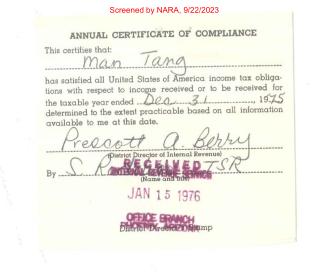 Screened by NARA, 9/22/2023
ANNUAL CERTIFICATE OF COMPLIANCE
This certifies that:
Man Tang
has satisfied all United States of America income tax obliga-
tions with respect to income received or to be received for
the taxable year ended Dec 31, 1975
determined to the extent practicable based on all information
available to me at this date.
Prescott A. Berry
(District Director of Internal Revenue)
RECEIVED
By S. TSR
INTERNAL REVENUE SERVICE
(Name and title)
JAN 15 1976
OFFICE BRANCH
District Director's Stamp